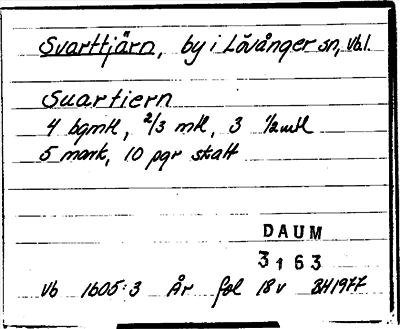 Svarttjärn, by i Lövånger sn, Vbl.
Suartiern
4 bgmtl, 2/3 mtl, 3 1/2mtl
5 mark, 10 pgr skatt
DAUM
3163
Vb 1605:3 År fol 18v BH1977